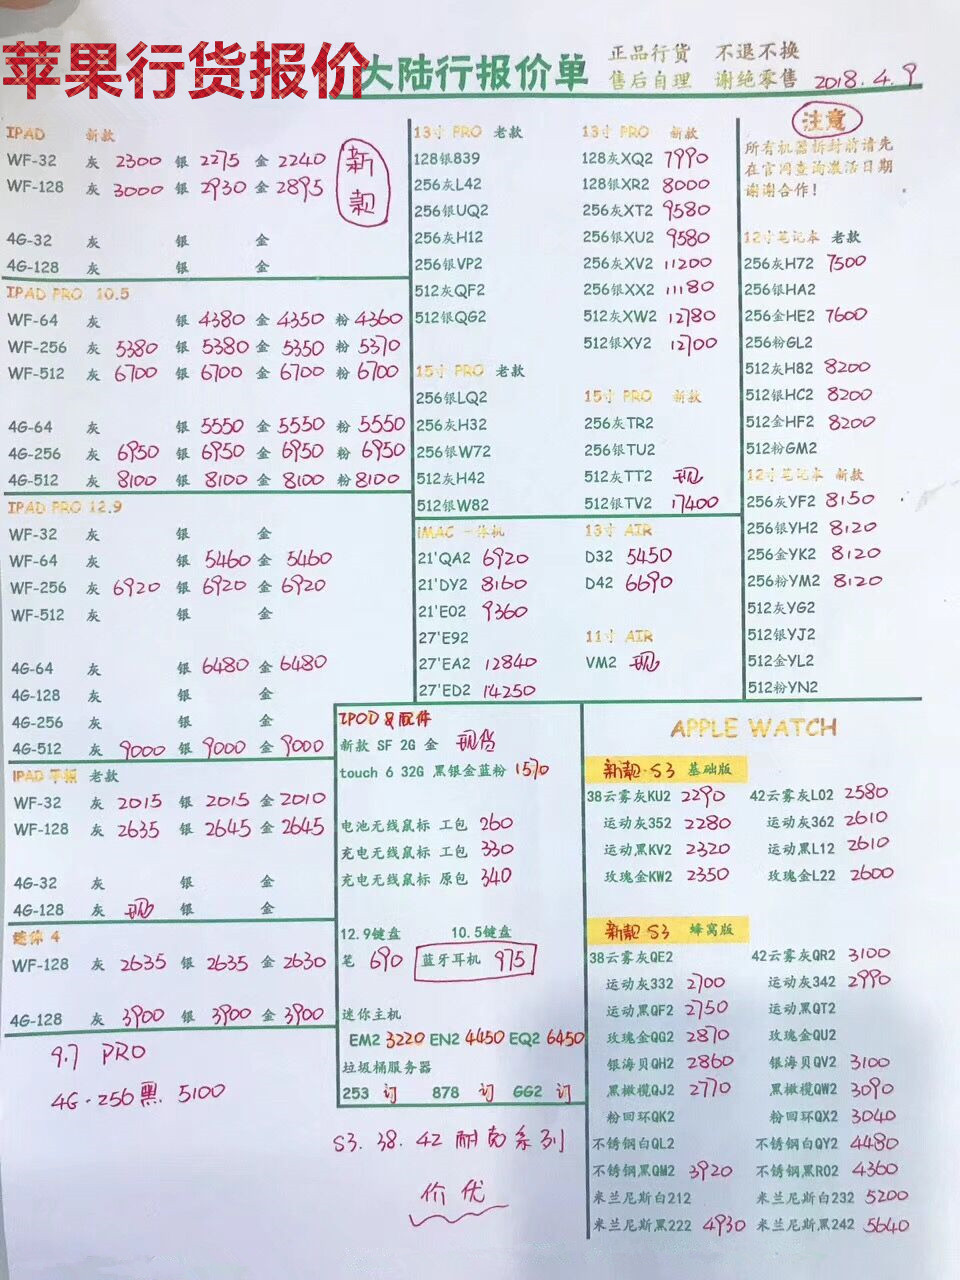 苹果行货报价
大陆行报价单
正品行货 不退不换
售后自理 谢绝零售
2018.4.9
IPAD 新款
WF-32 灰 2300 银 2275 金 2240
WF-128 灰 3000 银 2930 金 2895
新款
4G-32 灰 银 金
4G-128 灰 银 金
IPAD PRO 10.5
WF-64 灰 银 4380 金 4350 粉 4360
WF-256 灰 5380 银 5380 金 5350 粉 5370
WF-512 灰 6700 银 6700 金 6700 粉 6700
4G-64 灰 银 5550 金 5550 粉 5550
4G-256 灰 6950 银 6950 金 6950 粉 6950
4G-512 灰 8100 银 8100 金 8100 粉 8100
IPAD PRO 12.9
WF-32 灰 银 金
WF-64 灰 银 5460 金 5460
WF-256 灰 6920 银 6920 金 6920
WF-512 灰 银 金
4G-64 灰 银 6480 金 6480
4G-128 灰 银 金
4G-256 灰 银 金
4G-512 灰 9000 银 9000 金 9000
IPAD 平板 老款
WF-32 灰 2015 银 2015 金 2010
WF-128 灰 2635 银 2645 金 2645
4G-32 灰 银 金
4G-128 灰 现 银 金
迷你 4
WF-128 灰 2635 银 2635 金 2630
4G-128 灰 3900 银 3900 金 3900
9.7 PRO
4G·256黑 5100
13寸 PRO 老款
128银839
256灰L42
256银UQ2
256灰H12
256银VP2
512灰QF2
512银QG2
15寸 PRO 老款
256银LQ2
256灰H32
256银W72
512灰H42
512银W82
13寸 PRO 新款
128灰XQ2 7990
128银XR2 8000
256灰XT2 9580
256银XU2 9580
256灰XV2 11200
256银XX2 11180
512灰XW2 12780
512银XY2 12700
15寸 PRO 新款
256灰TR2
256银TU2
512灰TT2 现
512银TV2 17400
注意
所有机器拆封前请先
在官网查询激活日期
谢谢合作！
12寸笔记本 老款
256灰H72 7500
256银HA2
256金HE2 7600
256粉GL2
512灰H82 8200
512银HC2 8200
512金HF2 8200
512粉GM2
12寸笔记本 新款
256灰YF2 8150
256银YH2 8120
256金YK2 8120
256粉YM2 8120
512灰YG2
512银YJ2
512金YL2
512粉YN2
iMAC 一体机
21'QA2 6920
21'DY2 8160
21'E02 9360
27'E92
27'EA2 12840
27'ED2 14250
13寸 AIR
D32 5450
D42 6690
11寸 AIR
VM2 现
IPOD & 配件
新款 SF 2G 金 现货
touch 6 32G 黑银金蓝粉 1570
电池无线鼠标 工包 260
充电无线鼠标 工包 330
充电无线鼠标 原包 340
12.9键盘 10.5键盘
笔 690 蓝牙耳机 975
迷你主机
EM2 3220 EN2 4450 EQ2 6450
垃圾桶服务器
253 订 878 订 GG2 订
S3. 38. 42 耐克系列
价优
APPLE WATCH
新靓·S3 基础版
38云雾灰KU2 2290 42云雾灰L02 2580
运动灰352 2280 运动灰362 2610
运动黑KV2 2320 运动黑L12 2610
玫瑰金KW2 2350 玫瑰金L22 2600
新靓 S3 蜂窝版
38云雾灰QE2 42云雾灰QR2 3100
运动灰332 2700 运动灰342 2990
运动黑QF2 2750 运动黑QT2
玫瑰金QG2 2870 玫瑰金QU2
银海贝QH2 2860 银海贝QV2 3100
黑橄榄QJ2 2770 黑橄榄QW2 3090
粉回环QK2 粉回环QX2 3040
不锈钢白QL2 不锈钢白QY2 4480
不锈钢黑QM2 3920 不锈钢黑R02 4360
米兰尼斯白212 米兰尼斯白232 5200
米兰尼斯黑222 4930 米兰尼斯黑242 5640